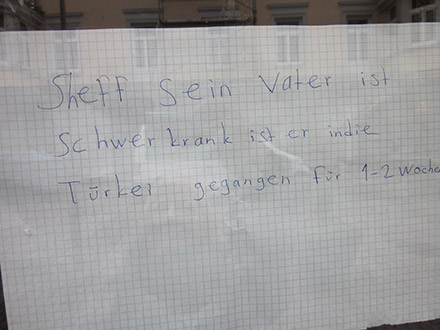 Sheff sein Vater ist
Schwer krank ist er indie
Türkei gegangen für 1-2 Woche